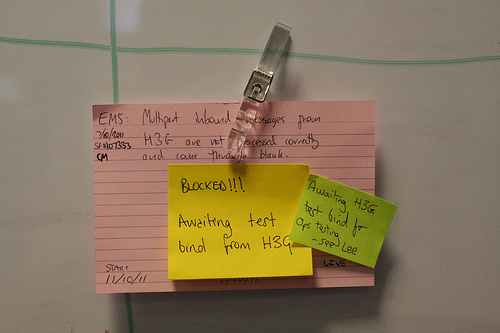 EMS: Multipart Inbound messages from
7/10/2011
H3G are not processed correctly
CM
and come through blank.
BLOCKED!!!
Awaiting test
bind from H3G
Awaiting H3G
test bind for
Ops testing
- see Lee
START
LIVE
11/10/11